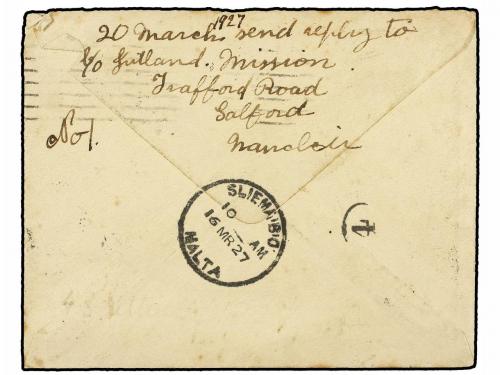 20 March 1927 send reply to
c/o Jutland Mission
Trafford Road
Salford
No 1.
SLIEMA B.O.
10 AM
16 MR 27
MALTA
4